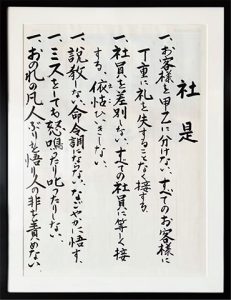 社是
一、お客様を甲乙に分けない、すべてのお客様に
丁重に礼を失することなく接する。
一、社員を差別しない、すべての社員に等しく接
する、依怙ひいきしない。
一、説教しない、命令調にならない、なごやかに悟す、
一、ミスをしても怒鳴ったり叱ったりしない。
一、おのれの凡人ぶりを悟り人の非を責めない。